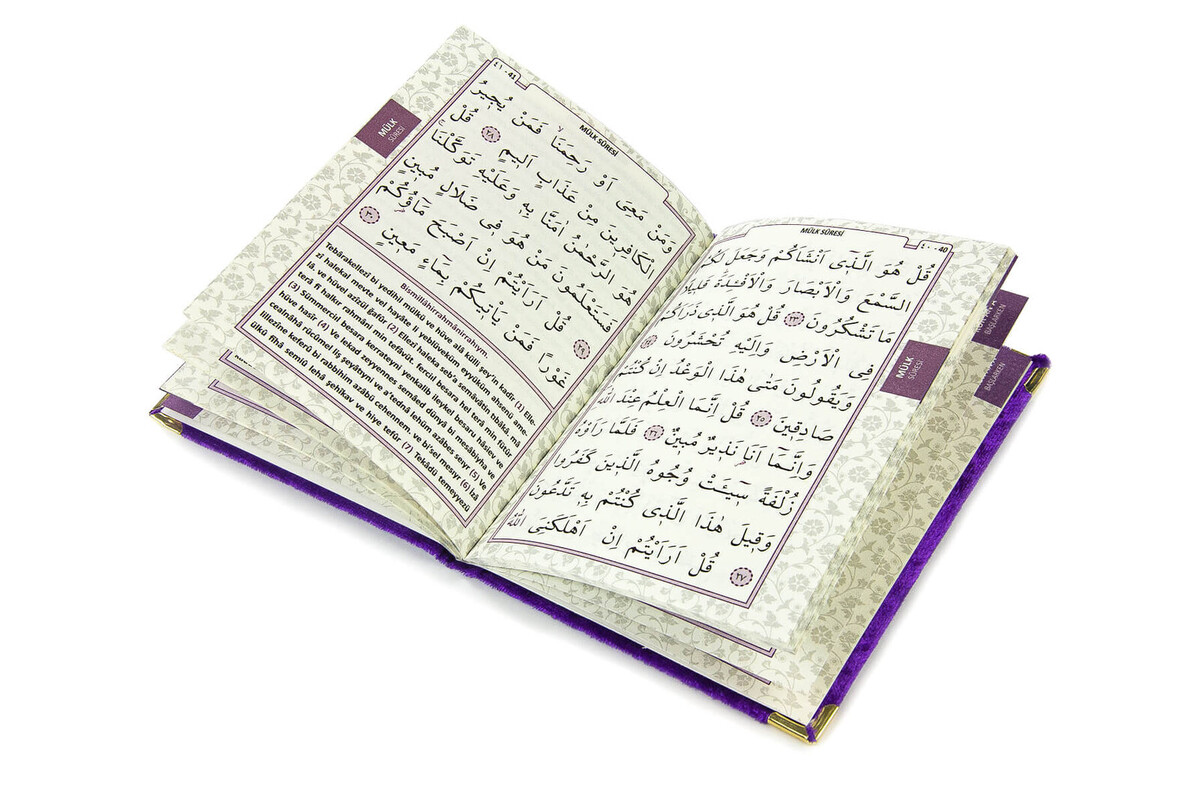 MÜLK SÛRESİ
٤٠ - 40
قُلْ هُوَ الَّذ۪ٓي اَنْشَاَكُمْ وَجَعَلَ لَكُمُ
السَّمْعَ وَالْاَبْصَارَ وَالْاَفْـِٔدَةَۜ قَل۪يلًا
مَا تَشْكُرُونَ ﴿٢٣﴾ قُلْ هُوَ الَّذ۪ي ذَرَاَكُمْ
فِي الْاَرْضِ وَاِلَيْهِ تُحْشَرُونَ ﴿٢٤﴾
وَيَقُولُونَ مَتٰى هٰذَا الْوَعْدُ اِنْ كُنْتُمْ
صَادِق۪ينَ ﴿٢٥﴾ قُلْ اِنَّمَا الْعِلْمُ عِنْدَ اللّٰهِ
وَاِنَّمَٓا اَنَا۬ نَذ۪يرٌ مُب۪ينٌ ﴿٢٦﴾ فَلَمَّا رَاَوْهُ
زُلْفَةً س۪ٓيـَٔتْ وُجُوهُ الَّذ۪ينَ كَفَرُوا
وَق۪يلَ هٰذَا الَّذ۪ي كُنْتُمْ بِه۪ تَدَّعُونَ
﴿٢٧﴾ قُلْ اَرَاَيْتُمْ اِنْ اَهْلَكَنِيَ اللّٰهُ
MÜLK
SÛRESİ
BAŞLARKEN
BAŞLARKEN
MÜLK SÛRESİ
٤١ - 41
وَمَنْ مَعِيَ اَوْ رَحِمَنَاۙ فَمَنْ يُج۪يرُ
الْكَافِر۪ينَ مِنْ عَذَابٍ اَل۪يمٍ ﴿٢٨﴾ قُلْ
هُوَ الرَّحْمٰنُ اٰمَنَّا بِه۪ وَعَلَيْهِ تَوَكَّلْنَاۚ
فَسَتَعْلَمُونَ مَنْ هُوَ ف۪ي ضَلَالٍ مُب۪ينٍ
﴿٢٩﴾ قُلْ اَرَاَيْتُمْ اِنْ اَصْبَحَ مَٓاؤُ۬كُمْ
غَوْرًا فَمَنْ يَأْت۪يكُمْ بِمَٓاءٍ مَع۪ينٍ ﴿٣٠﴾
MÜLK
SÛRESİ
Bismillâhirrahmânirrahıym.
Tebârakellezî bi yedihil mülkü ve hüve alâ külli şey'in kadîr (1) Elle-
zî halekal mevte vel hayâte li yeblüveküm eyyüküm ahsenü ame-
lâ. ve hüvel azîzül ğafûr (2) Ellezî haleka seb'a semâvâtin tıbâkâ mâ
terâ fî halkır rahmâni min tefâvüt. ferciıl besara hel terâ min fütûr
(3) Sümmerciıl besara kerrateyni yenkalib ileykel besaru hâsiev ve
hüve hasîr (4) Ve lekad zeyyennes semâed dünyâ bi mesâbiyha ve
cealnâhâ rücûmel liş şeyâtıyni ve a'tednâ lehüm azâbes seıyr (5) Ve
lillezîne keferû bi rabbihim azâbü cehennem. ve bi'sel mesıyr (6) İzâ
ülkû fîhâ semiû lehâ şehîkav ve hiye tefûr (7) Tekâdü temeyyezü